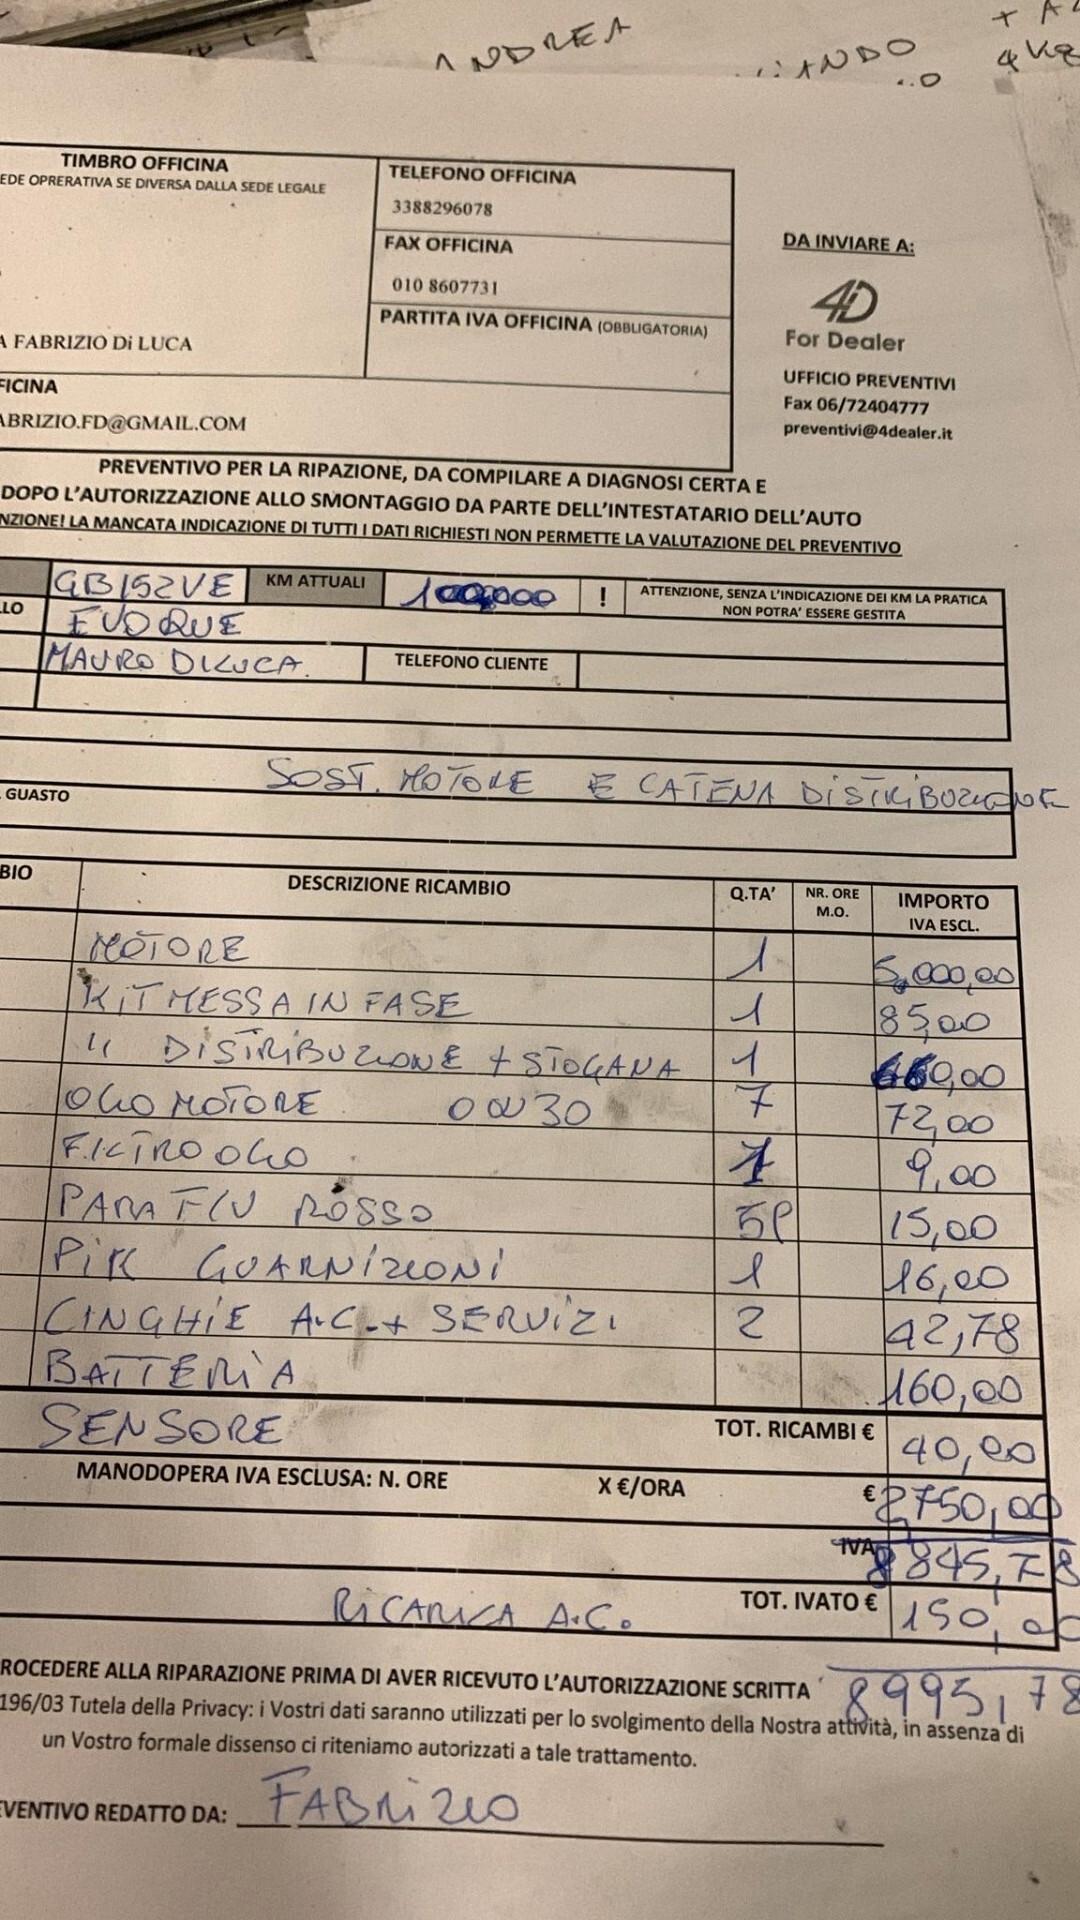 ANDREA
+ A
4 Kg
TIMBRO OFFICINA
EDE OPRERATIVA SE DIVERSA DALLA SEDE LEGALE
TELEFONO OFFICINA
3388296078
FAX OFFICINA
010 8607731
PARTITA IVA OFFICINA (OBBLIGATORIA)
DA INVIARE A:
4D
For Dealer
UFFICIO PREVENTIVI
Fax 06/72404777
preventivi@4dealer.it
A FABRIZIO Di LUCA
FICINA
ABRIZIO.FD@GMAIL.COM
PREVENTIVO PER LA RIPAZIONE, DA COMPILARE A DIAGNOSI CERTA E
DOPO L'AUTORIZZAZIONE ALLO SMONTAGGIO DA PARTE DELL'INTESTATARIO DELL'AUTO
NZIONE! LA MANCATA INDICAZIONE DI TUTTI I DATI RICHIESTI NON PERMETTE LA VALUTAZIONE DEL PREVENTIVO
GB152VE KM ATTUALI 100,000 ! ATTENZIONE, SENZA L'INDICAZIONE DEI KM LA PRATICA
NON POTRA' ESSERE GESTITA
LLO EVOQUE
MAURO DILUCA. TELEFONO CLIENTE
SOST. MOTORE E CATENA DISTRIBUZIONE
GUASTO
BIO DESCRIZIONE RICAMBIO Q.TA' NR. ORE M.O. IMPORTO IVA ESCL.
MOTORE 1 5,000,00
KIT MESSA IN FASE 1 85,00
" DISTRIBUZIONE + STOGANA 1 660,00
OLIO MOTORE 0W30 7 72,00
FILTRO OLIO 1 9,00
PARAFLU ROSSO 5P 15,00
PIK GUARNIZIONI 1 16,00
CINGHIE A.C. + SERVIZI 2 42,78
BATTERIA 160,00
SENSORE TOT. RICAMBI € 40,00
MANODOPERA IVA ESCLUSA: N. ORE X €/ORA € 2,750,00
IVA 8845,78
RICARICA A.C. TOT. IVATO € 150,00
ROCEDERE ALLA RIPARAZIONE PRIMA DI AVER RICEVUTO L'AUTORIZZAZIONE SCRITTA 8995,78
196/03 Tutela della Privacy: i Vostri dati saranno utilizzati per lo svolgimento della Nostra attività, in assenza di
un Vostro formale dissenso ci riteniamo autorizzati a tale trattamento.
EVENTIVO REDATTO DA: FABRIZIO